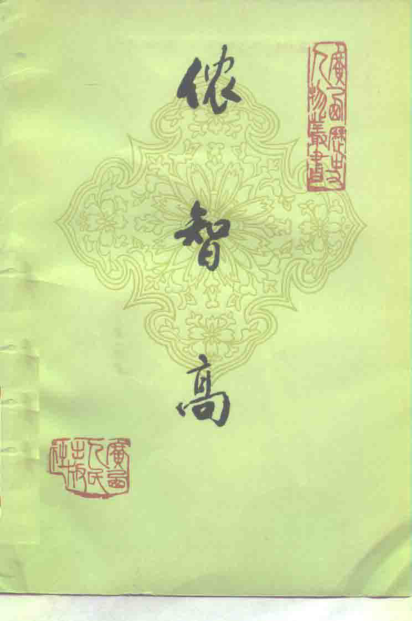 侬智高
廣西歷史
人物叢書
廣西
人民
出版
社